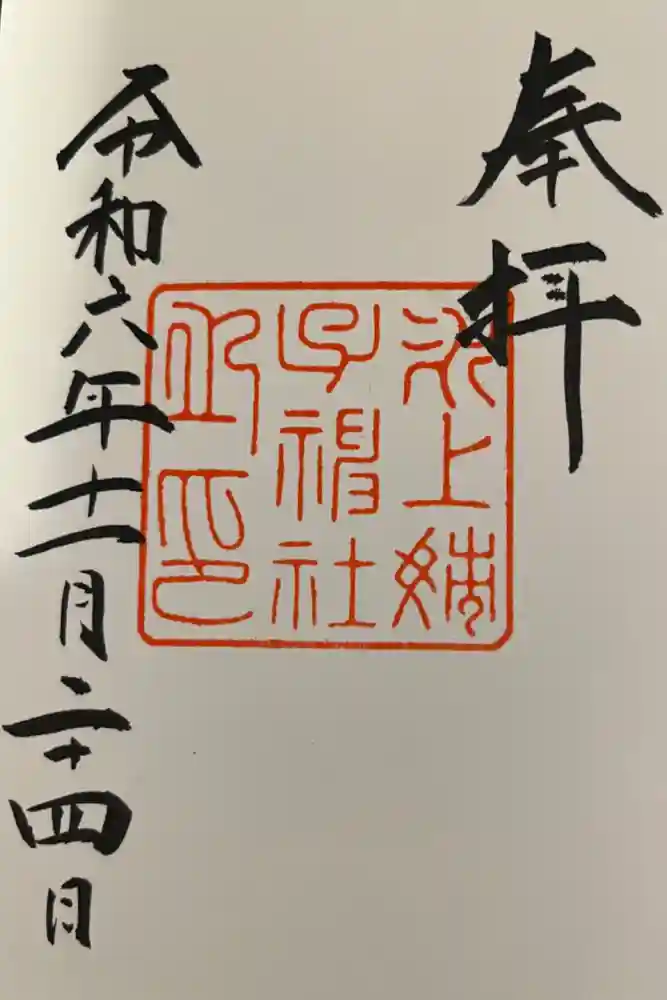 奉拝
氷上姉
子神社
之印
令和六年十一月二十四日